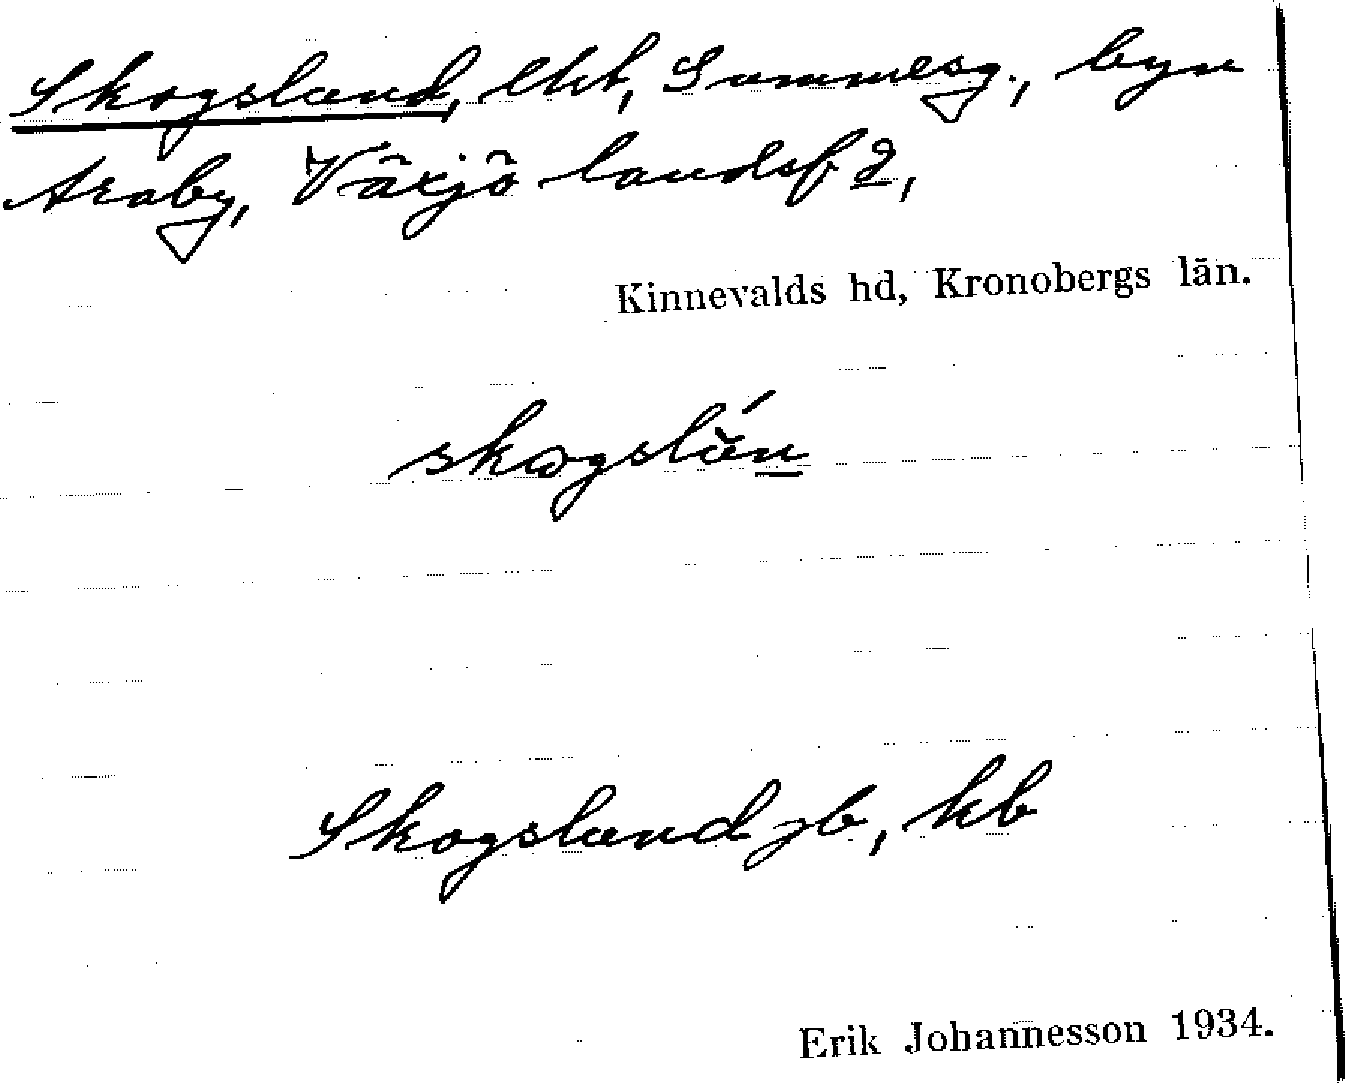 Skogslund, lht, Sammelsg., byn
Araby, Växjö landsf 2,
Kinnevalds hd, Kronobergs län.
skogslún
Skogslund jb, kb
Erik Johannesson 1934.